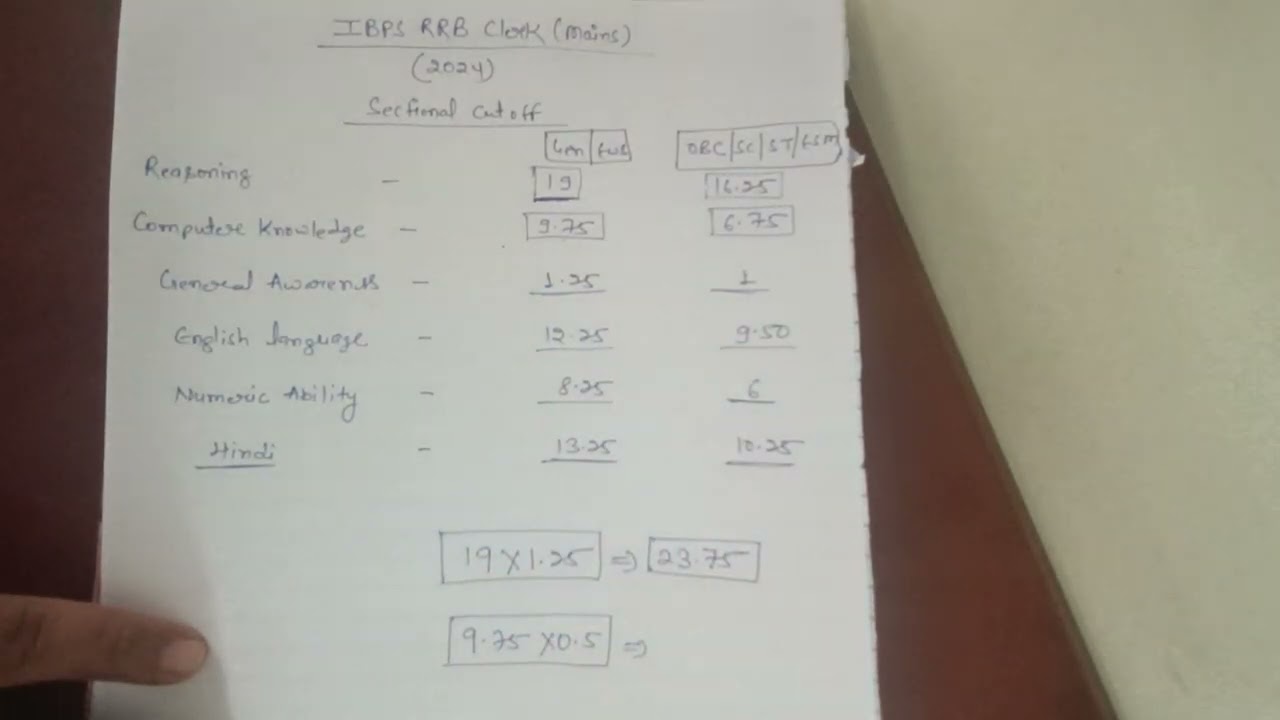 IBPS RRB Clerk (Mains)
(2024)
Sectional Cutoff
Gen/EWS OBC/SC/ST/ESM
Reasoning - 19 16.25
Computer Knowledge - 9.75 6.75
General Awarenss - 1.25 1
English language - 12.25 9.50
Numeric Ability - 8.25 6
Hindi - 13.25 10.25
19 X 1.25 ⇒ 23.75
9.75 X 0.5 ⇒